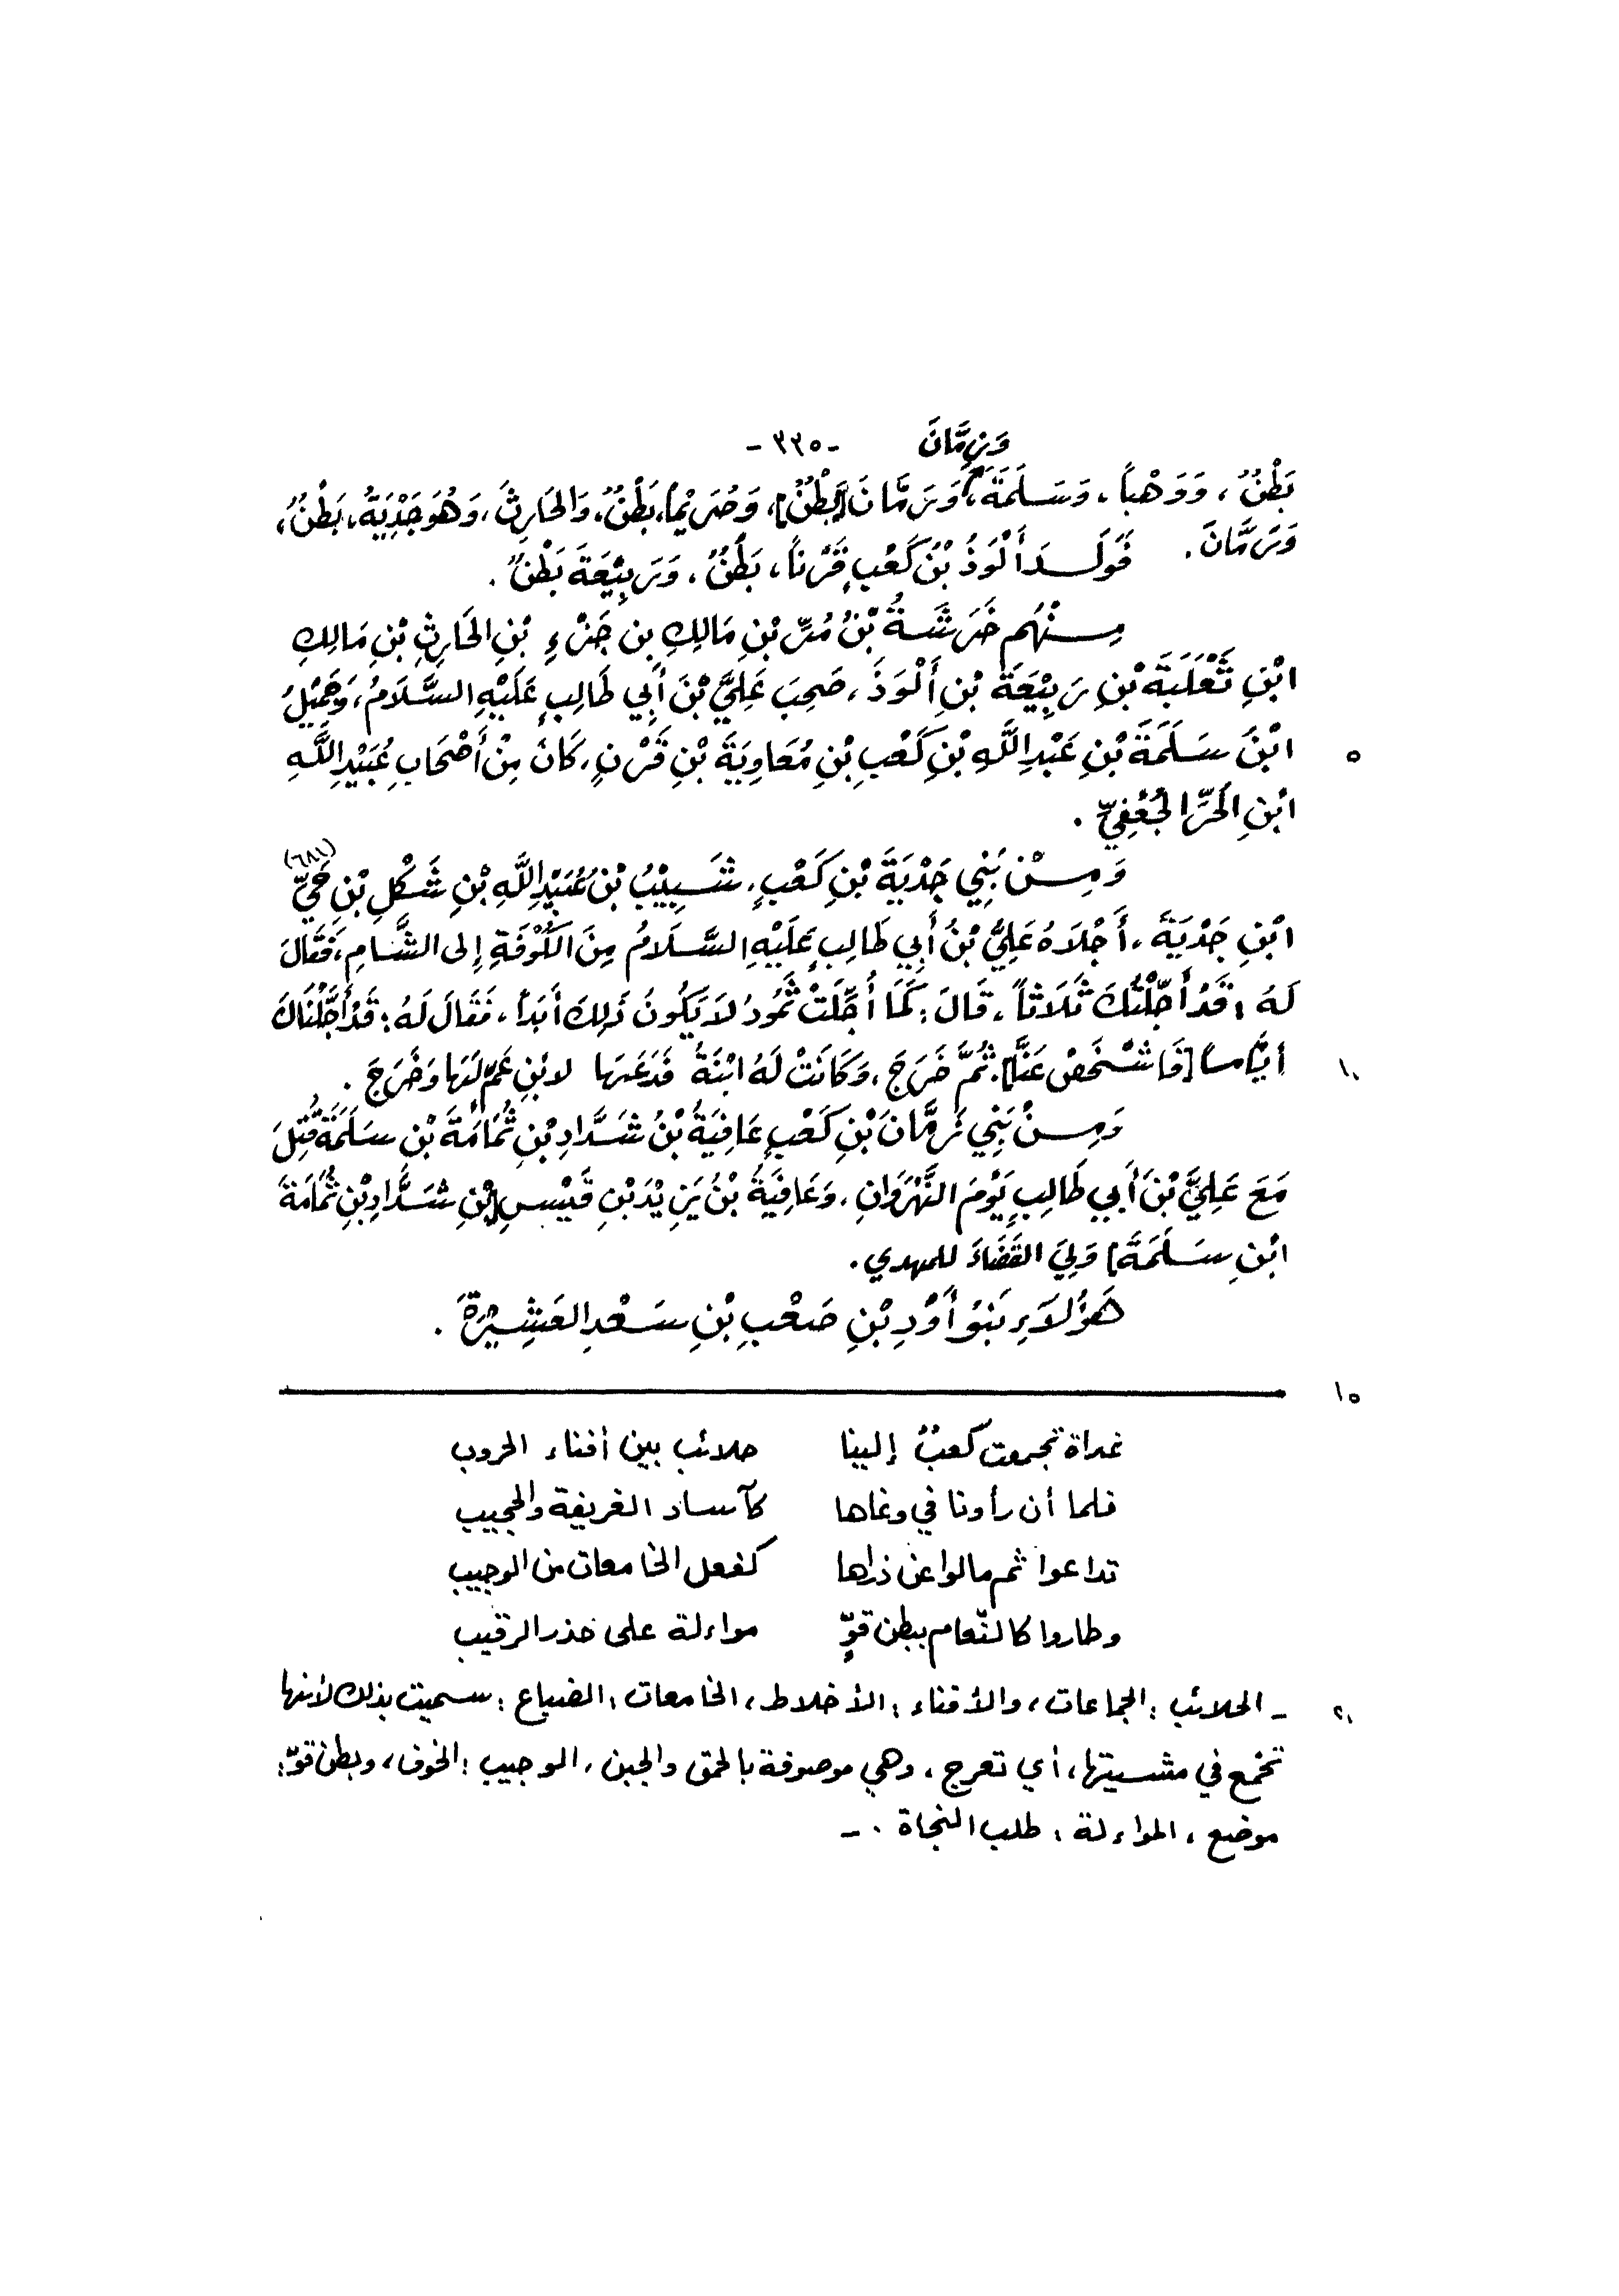 وَزِمَّانَ -٣٢٥-
بَطْنٌ، وَوَهْباً، وَسَلَمَةَ، وَزِمَّانَ [بَطْنٌ]، وَصُرَيْماً، بَطْنٌ، وَالحَارِثَ، وَهُوَ جَدْيَةُ، بَطْنٌ،
وَزِمَّانَ. فَوَلَدَ أَلْوَذُ بْنُ كَعْبٍ قَرْناً، بَطْنٌ، وَرَبِيْعَةَ بَطْنٌ.
مِنْهُم خَرَشَةُ بْنُ مُرِّ بْنِ مَالِكِ بن جَزْءِ بْنِ الحَارِثِ بْنِ مَالِكِ
ابْنِ ثَعْلَبَةَ بْنِ رَبِيْعَةَ بْنِ أَلْوَذَ، صَحِبَ عَلِيَّ بْنَ أَبِي طَالِبٍ عَلَيْهِ السَّلَامُ، وَجَمِيْلُ
ابْنُ سَلَمَةَ بْنِ عَبْدِ اللَّهِ بْنِ كَعْبِ بْنِ مُعَاوِيَةَ بْنِ قَرْنٍ، كَانَ مِنْ أَصْحَابِ عُبَيْدِ اللَّهِ ٥
ابْنِ الحُرِّ الجُعْفِيِّ.
وَمِنْ بَنِي جَدْيَةَ بْنِ كَعْبٍ، شَبِيْبُ بْنُ عُبَيْدِ اللَّهِ بْنِ شَكْلِ بْنِ حَيِّ (٦٨١)
ابْنِ جَدْيَةَ، أَجْلَاهُ عَلِيُّ بْنُ أَبِي طَالِبٍ عَلَيْهِ السَّلَامُ مِنَ الكُوْفَةِ إِلى الشَّامِ، فَقَالَ
لَهُ: قَدْ أَجَّلْتُكَ ثَلَاثاً، قَالَ: كَمَا أُجِّلَتْ ثَمُودُ لَا يَكُونُ ذَلِكَ أَبَداً، فَقَالَ لَهُ: قَدْ أَجَّلْنَاكَ
أيَّاماً [فَاشْخَصْ عَنَّا]، ثُمَّ خَرَجَ، وَكَانَتْ لَهُ ابْنَةٌ فَدَعَهَا لابْنِ عَمٍّ لَهَا وَخَرَجَ. ١٠
وَمِنْ بَنِي زِمَّانَ بْنِ كَعْبٍ عَافِيَةُ بْنُ شَدَّادِ بْنِ ثُمَامَةَ بْنِ سَلَمَةَ قُتِلَ
مَعَ عَلِيَّ بْنَ أَبِي طَالِبٍ يَوْمَ النَّهْرَوَانِ، وَعَافِيَةُ بْنُ يَزِيْدَ بْنِ قَيْسِ [بْنِ شَدَّادِ بْنِ ثُمَامَةَ
ابْنِ سَلَمَةَ] وَلِيَ القَضَاءَ للمهدي.
هَؤُلَاءِ بَنُو أَوْدِ بْنِ صَعْبِ بْنِ سَعْدِ العَشِيْرَةَ.
١٥
غداة تجمعت كعبٌ إلينا حلائب بين أفناء الحروب
فلما أن رأونا في وغاها كآساد الغريفة والحجيب
تداعوا ثم مالوا عن ذراها كفعل الخامعات من الوجيب
وطاروا كالنّعام ببطن قوٍّ مواءلة على حذر الرقيب
- الحلائب: الجماعات، والأفناء: الأخلاط، الخامعات: الضباع: سميت بذلك لأنها ٢٠
تخمع في مشيتها، أي تعرج، وهي موصوفة بالحمق والجبن، الوجيب: الخوف، وبطن قوّ:
موضع، المواءلة: طلب النجاة. -